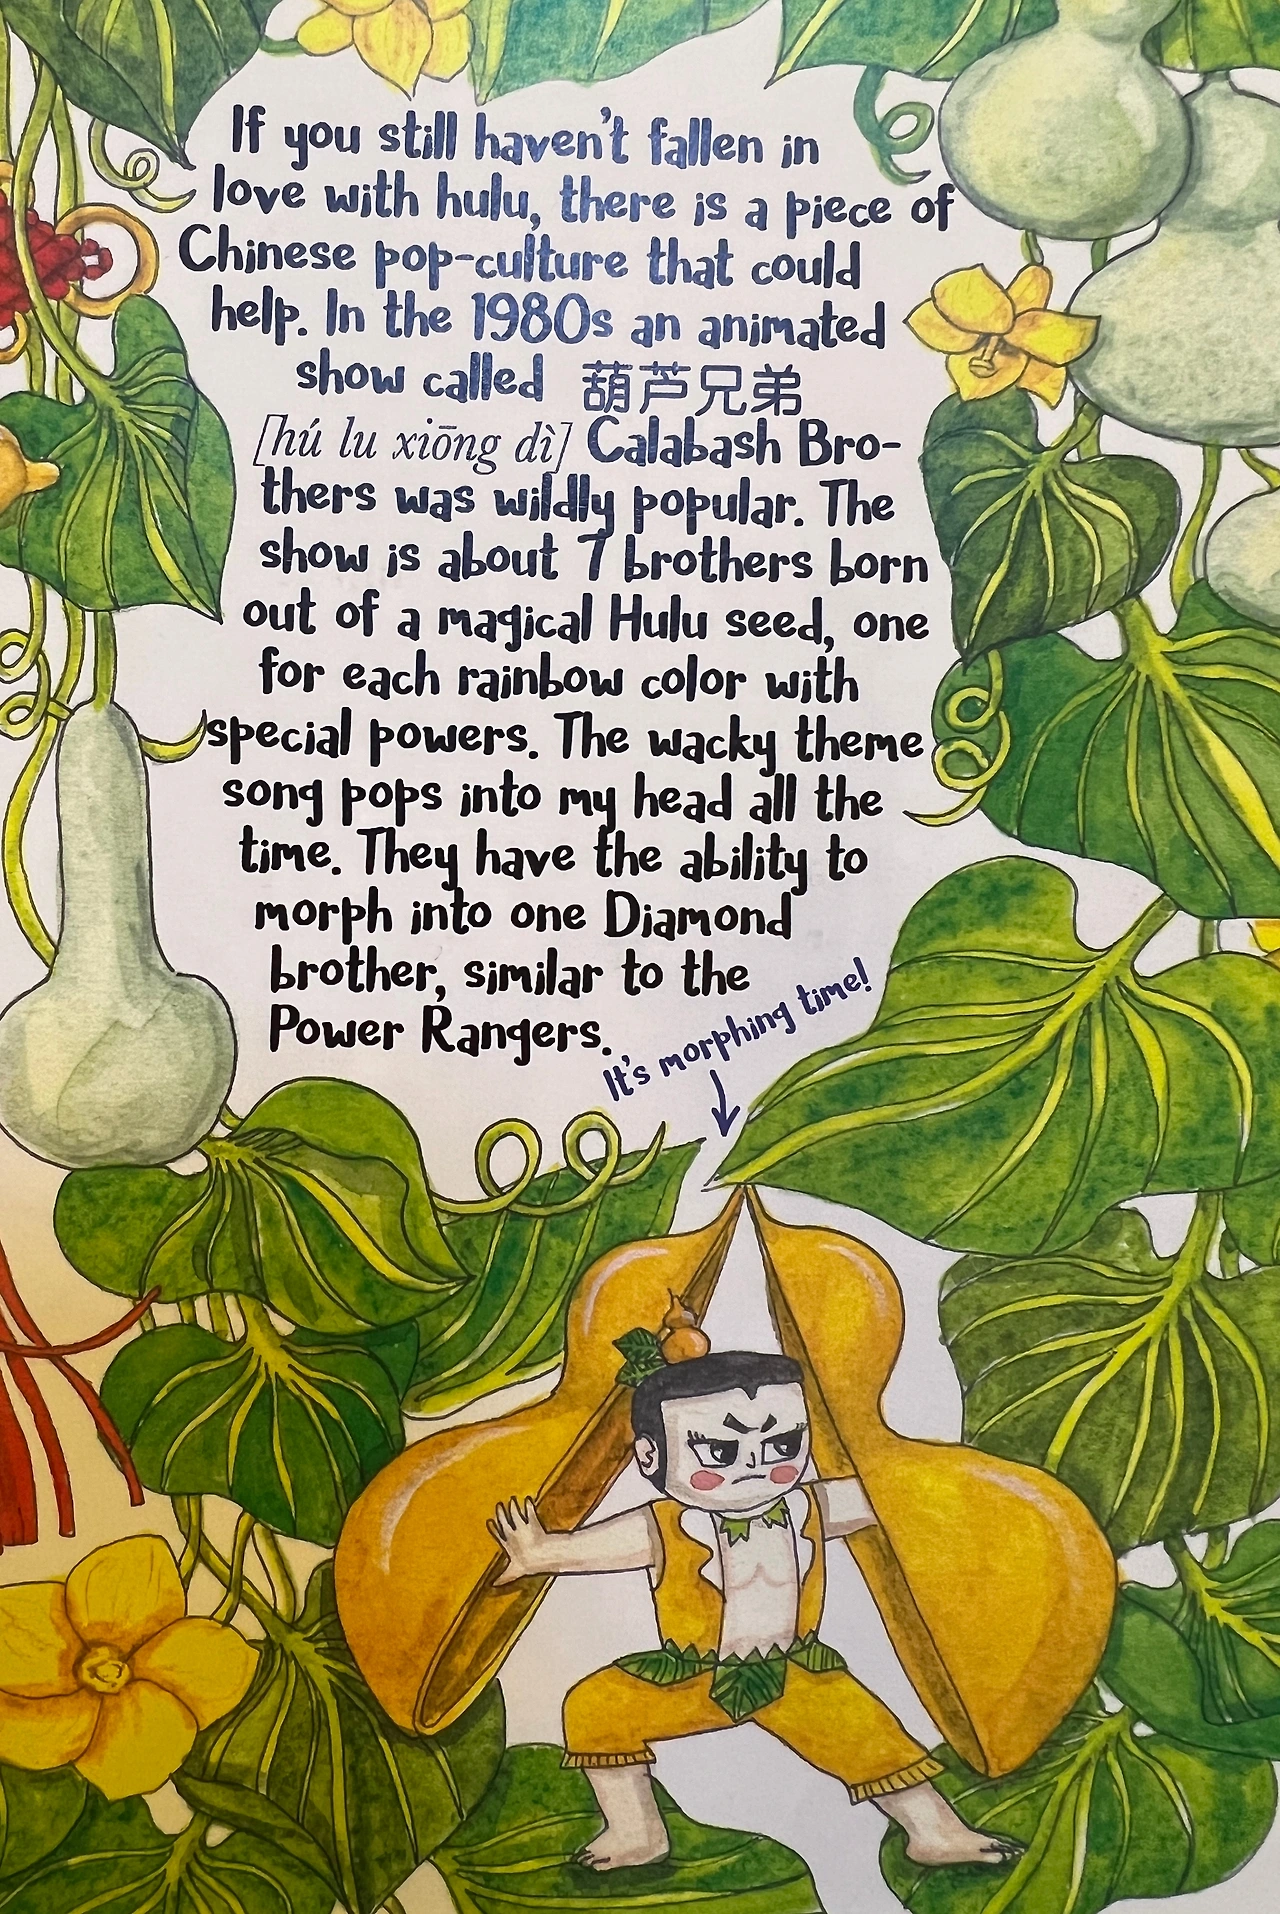 If you still haven't fallen in
love with hulu, there is a piece of
Chinese pop-culture that could
help. In the 1980s an animated
show called 葫芦兄弟
[hú lu xiōng dì] Calabash Bro-
thers was wildly popular. The
show is about 7 brothers born
out of a magical Hulu seed, one
for each rainbow color with
special powers. The wacky theme
song pops into my head all the
time. They have the ability to
morph into one Diamond
brother, similar to the
Power Rangers.
It's morphing time!